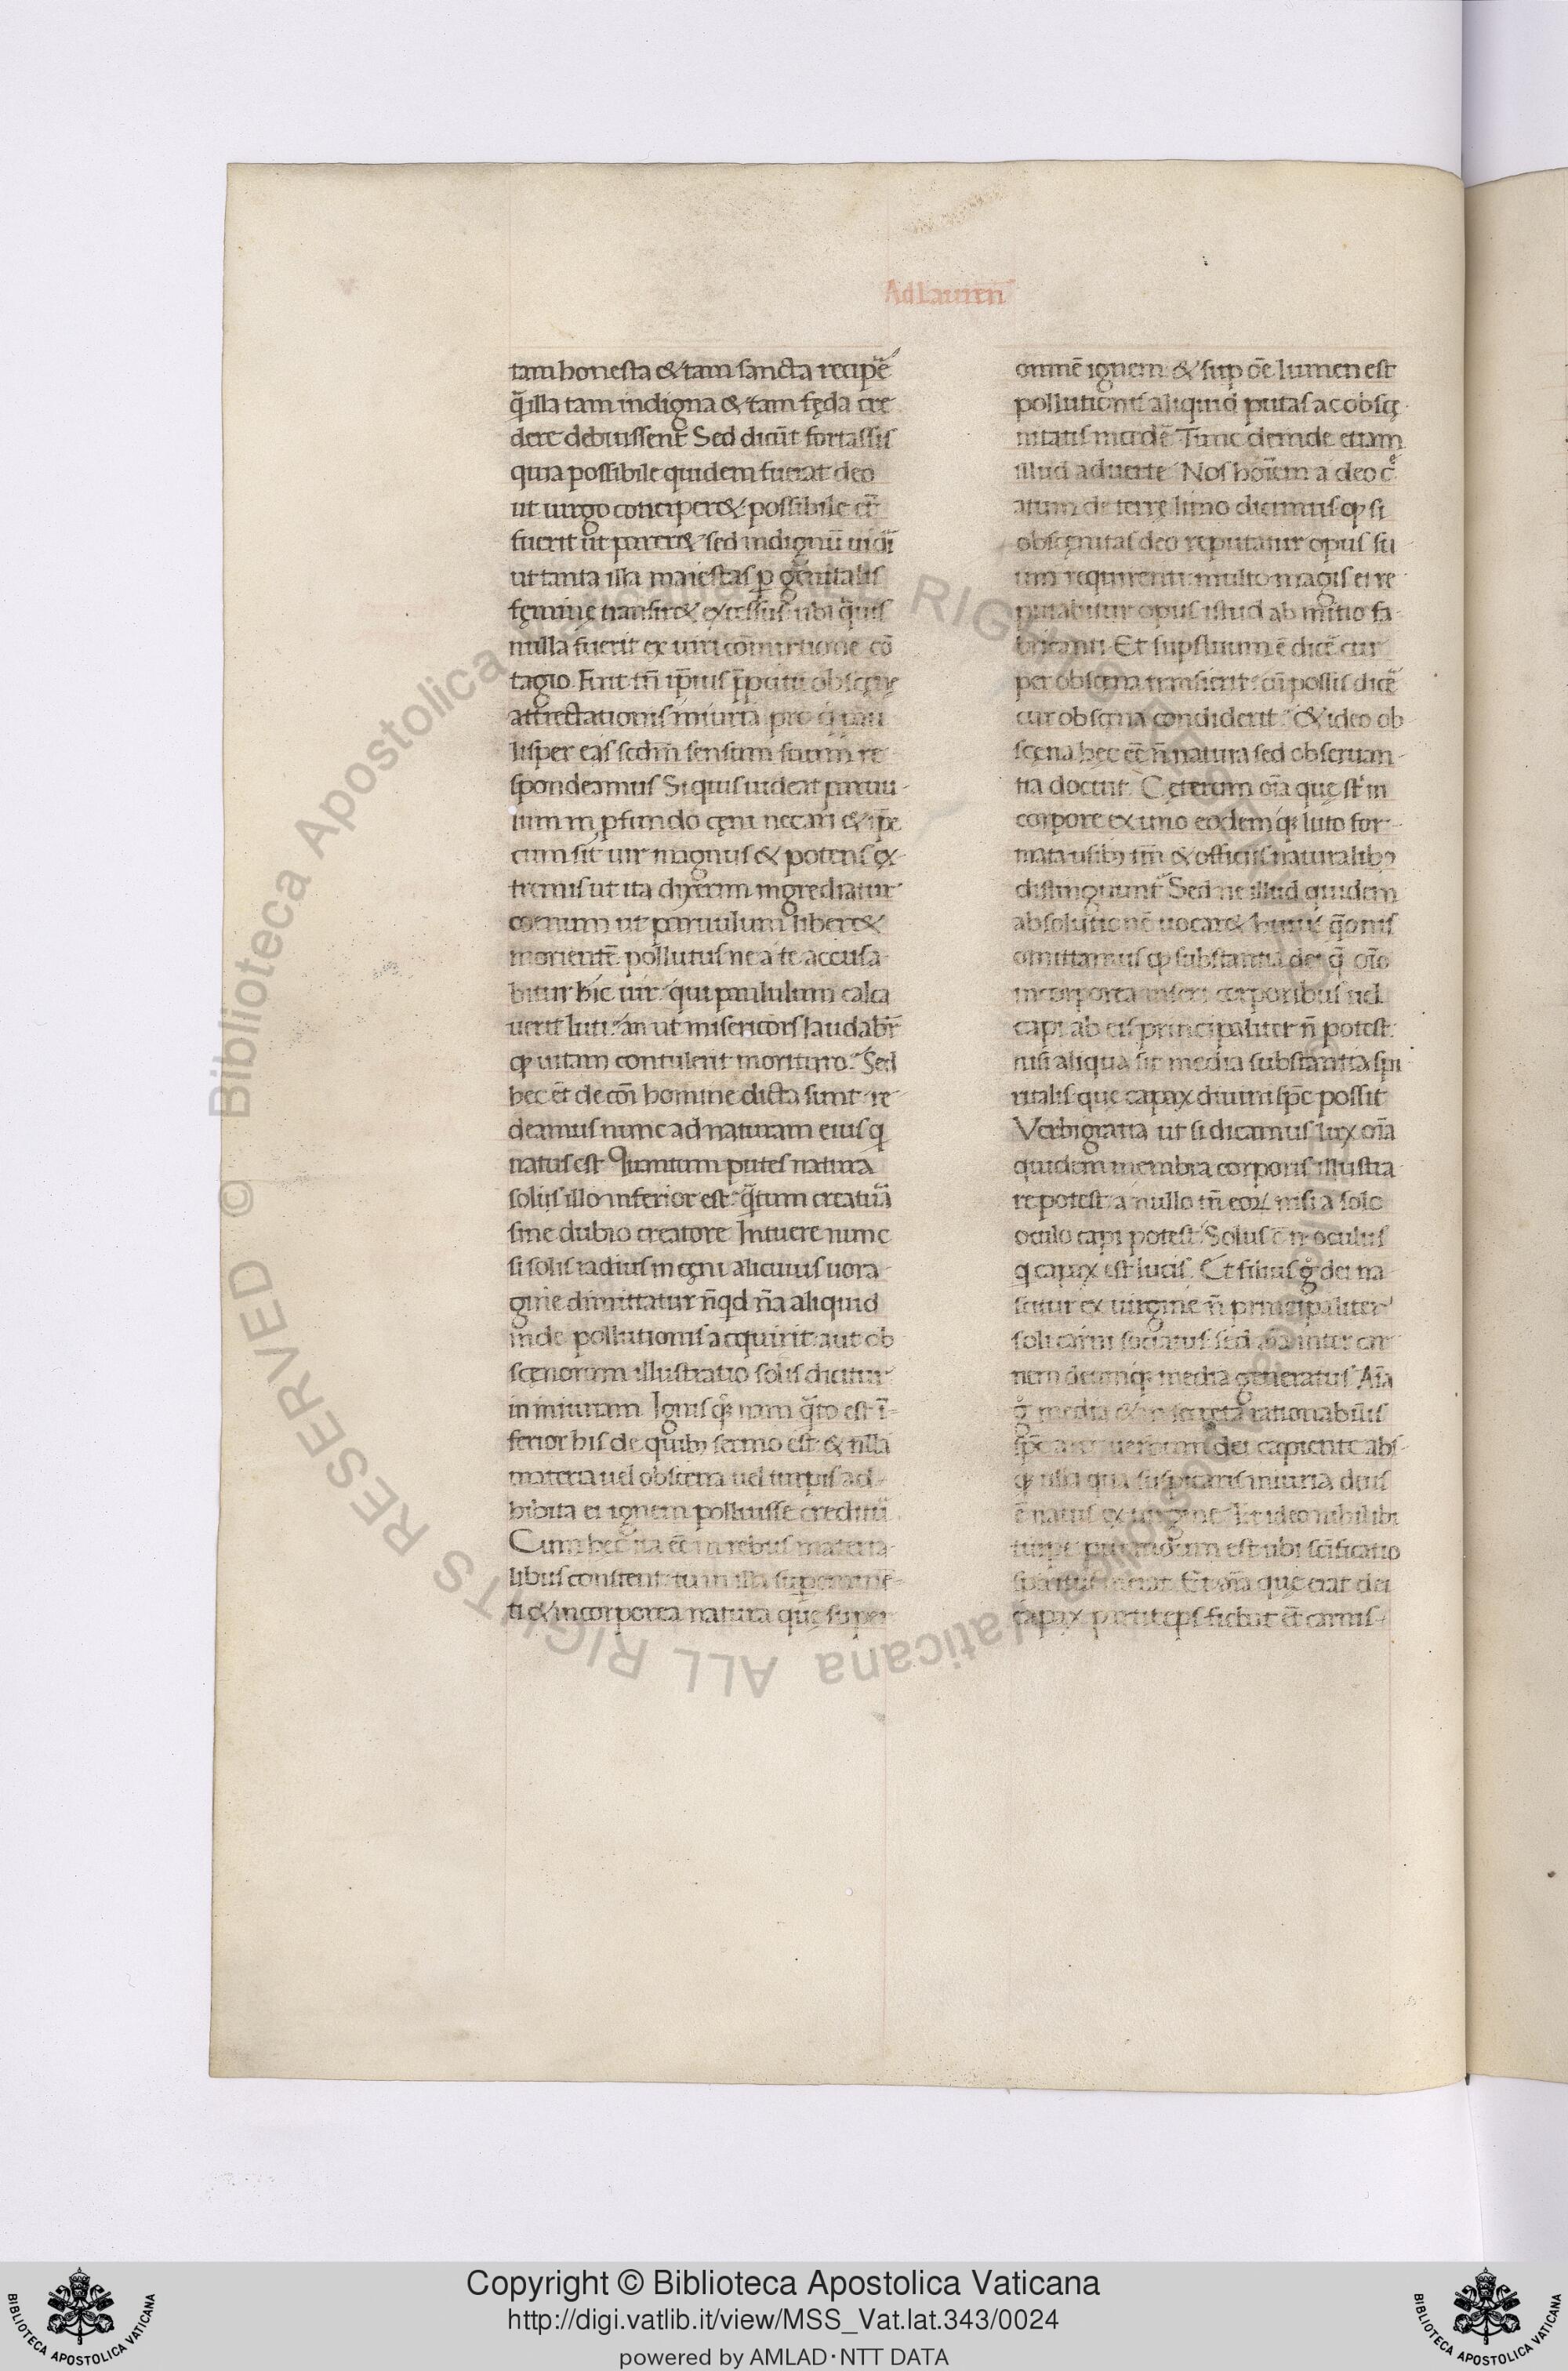 Ad Lauren̄
tam honesta & tam sancta recipe᷑
q̄ illa tam indigna & tam fęda cre
dere debuissent Sed dicūt fortassis
quia possibile quidem fuerat deo
ut uirgo conciper& possibile et̄
fuerit ut parer& sed indignū uidr̄
ut tanta illa maiestas ꝑ genitalis
fęminę transir& excessus ubi q̄uis
nulla fuerit ex uiri cōmixtione cō
tagio Fuit tn̄ ip̄ius
attrectationis iniuria pro
lisper eas scdm̄ sensum suum re
spondeamus Si quis uideat paruu-
lum in ꝓfundo cęni necari & ip̄e
cum sit uir magnus & potens ex-
tremis ut ita dixerim ingrediatur
coenum ut paruulum liber&
morientē pollutus ne a te accusa
bitur hic uir qui paululum calca
uerit luti an ut misericors laudabr̄
ꝙ uitam contulerit morituro Sed
hec et̄ de cōi homine dicta sunt re
deamus nunc ad naturam eius q
natus est Quantum putes natura
solis illo inferior est q̄tum creatura
sine dubio creatore Intuere nunc
si solis radius in cęni alicuius uora
gine dimittatur nqd n̄a aliquid
inde pollutionis acquirit aut ob
scęnorum illustratio solis dicitur
in iniuriam Ignis q̨ nam q̄to est ī
ferior his de quibꝫ sermo est & nulla
materia uel obscena uel turpis ad
hibita ei ignem polluisse creditur
Cum hec ita eē in rebus materia
libus constent tu in illa superemīē-
ti & incorporea natura quę super
omnē ignem & sup oē lumen est
pollutionis aliquid putas ac obscę
nitatis incidē Tunc deinde etiam
illud aduerte Nos hoīem a deo c̄
atum de terrę limo dicimus ꝙ si
obscęnitas deo reputatur opus su
um requirenti multo magis ei re
putabitur opus istud ab initio fa-
bricanti Et supfluum ē dicē cur
per obscena transierit cū possis dicē
cur obscęna condiderit & ideo ob
scęna hec eē n̄ natura sed obseruan-
tia docuit Cęterum oīa quę st̄ in
corpore ex uno eodemq̨ luto for-
mata usibꝫ tm̄ & officiis naturalibꝫ
distinguunt᷑ Sed ne illud quidem
absolutionē uocar& huius q̄onis
omittamus ꝙ substantia dei q̄ oīo
incorporea inseri corporibus uel
capi ab eis principaliter n̄ potest
nisi aliqua sit media substantia spi
ritalis que capax diuini sp̄c possit
Verbigratia ut si dicamus lux oīa
quidem membra corporis illustra
re potest a nullo tn̄ eoꝝ nisi a solo
oculo capi potest Solus ē n̄ oculus
q capax est lucis Et filius g̊ dei na
scitur ex uirgine n̄ principaliter
soli carni sociatus sed aīa inter car
nem deumq̨ media generatus Aīa
g̊ media & in secreta rationabilis
sp̄c arce uerbum dei capiente abs-
ꝙ ulla qua suspicaris iniuria deus
ē natus ex uirgine Et ideo nihil ibi
turpe putandum est ubi sc̄ificatio
spiritus inerat Et aīa quę erat dei
capax particeps fiebat et̄ carnis
Copyright © Biblioteca Apostolica Vaticana
http://digi.vatlib.it/view/MSS_Vat.lat.343/0024
powered by AMLAD·NTT DATA
BIBLIOTECA APOSTOLICA VATICANA
BIBLIOTECA APOSTOLICA VATICANA
© Biblioteca Apostolica Vaticana ALL RIGHTS RESERVED